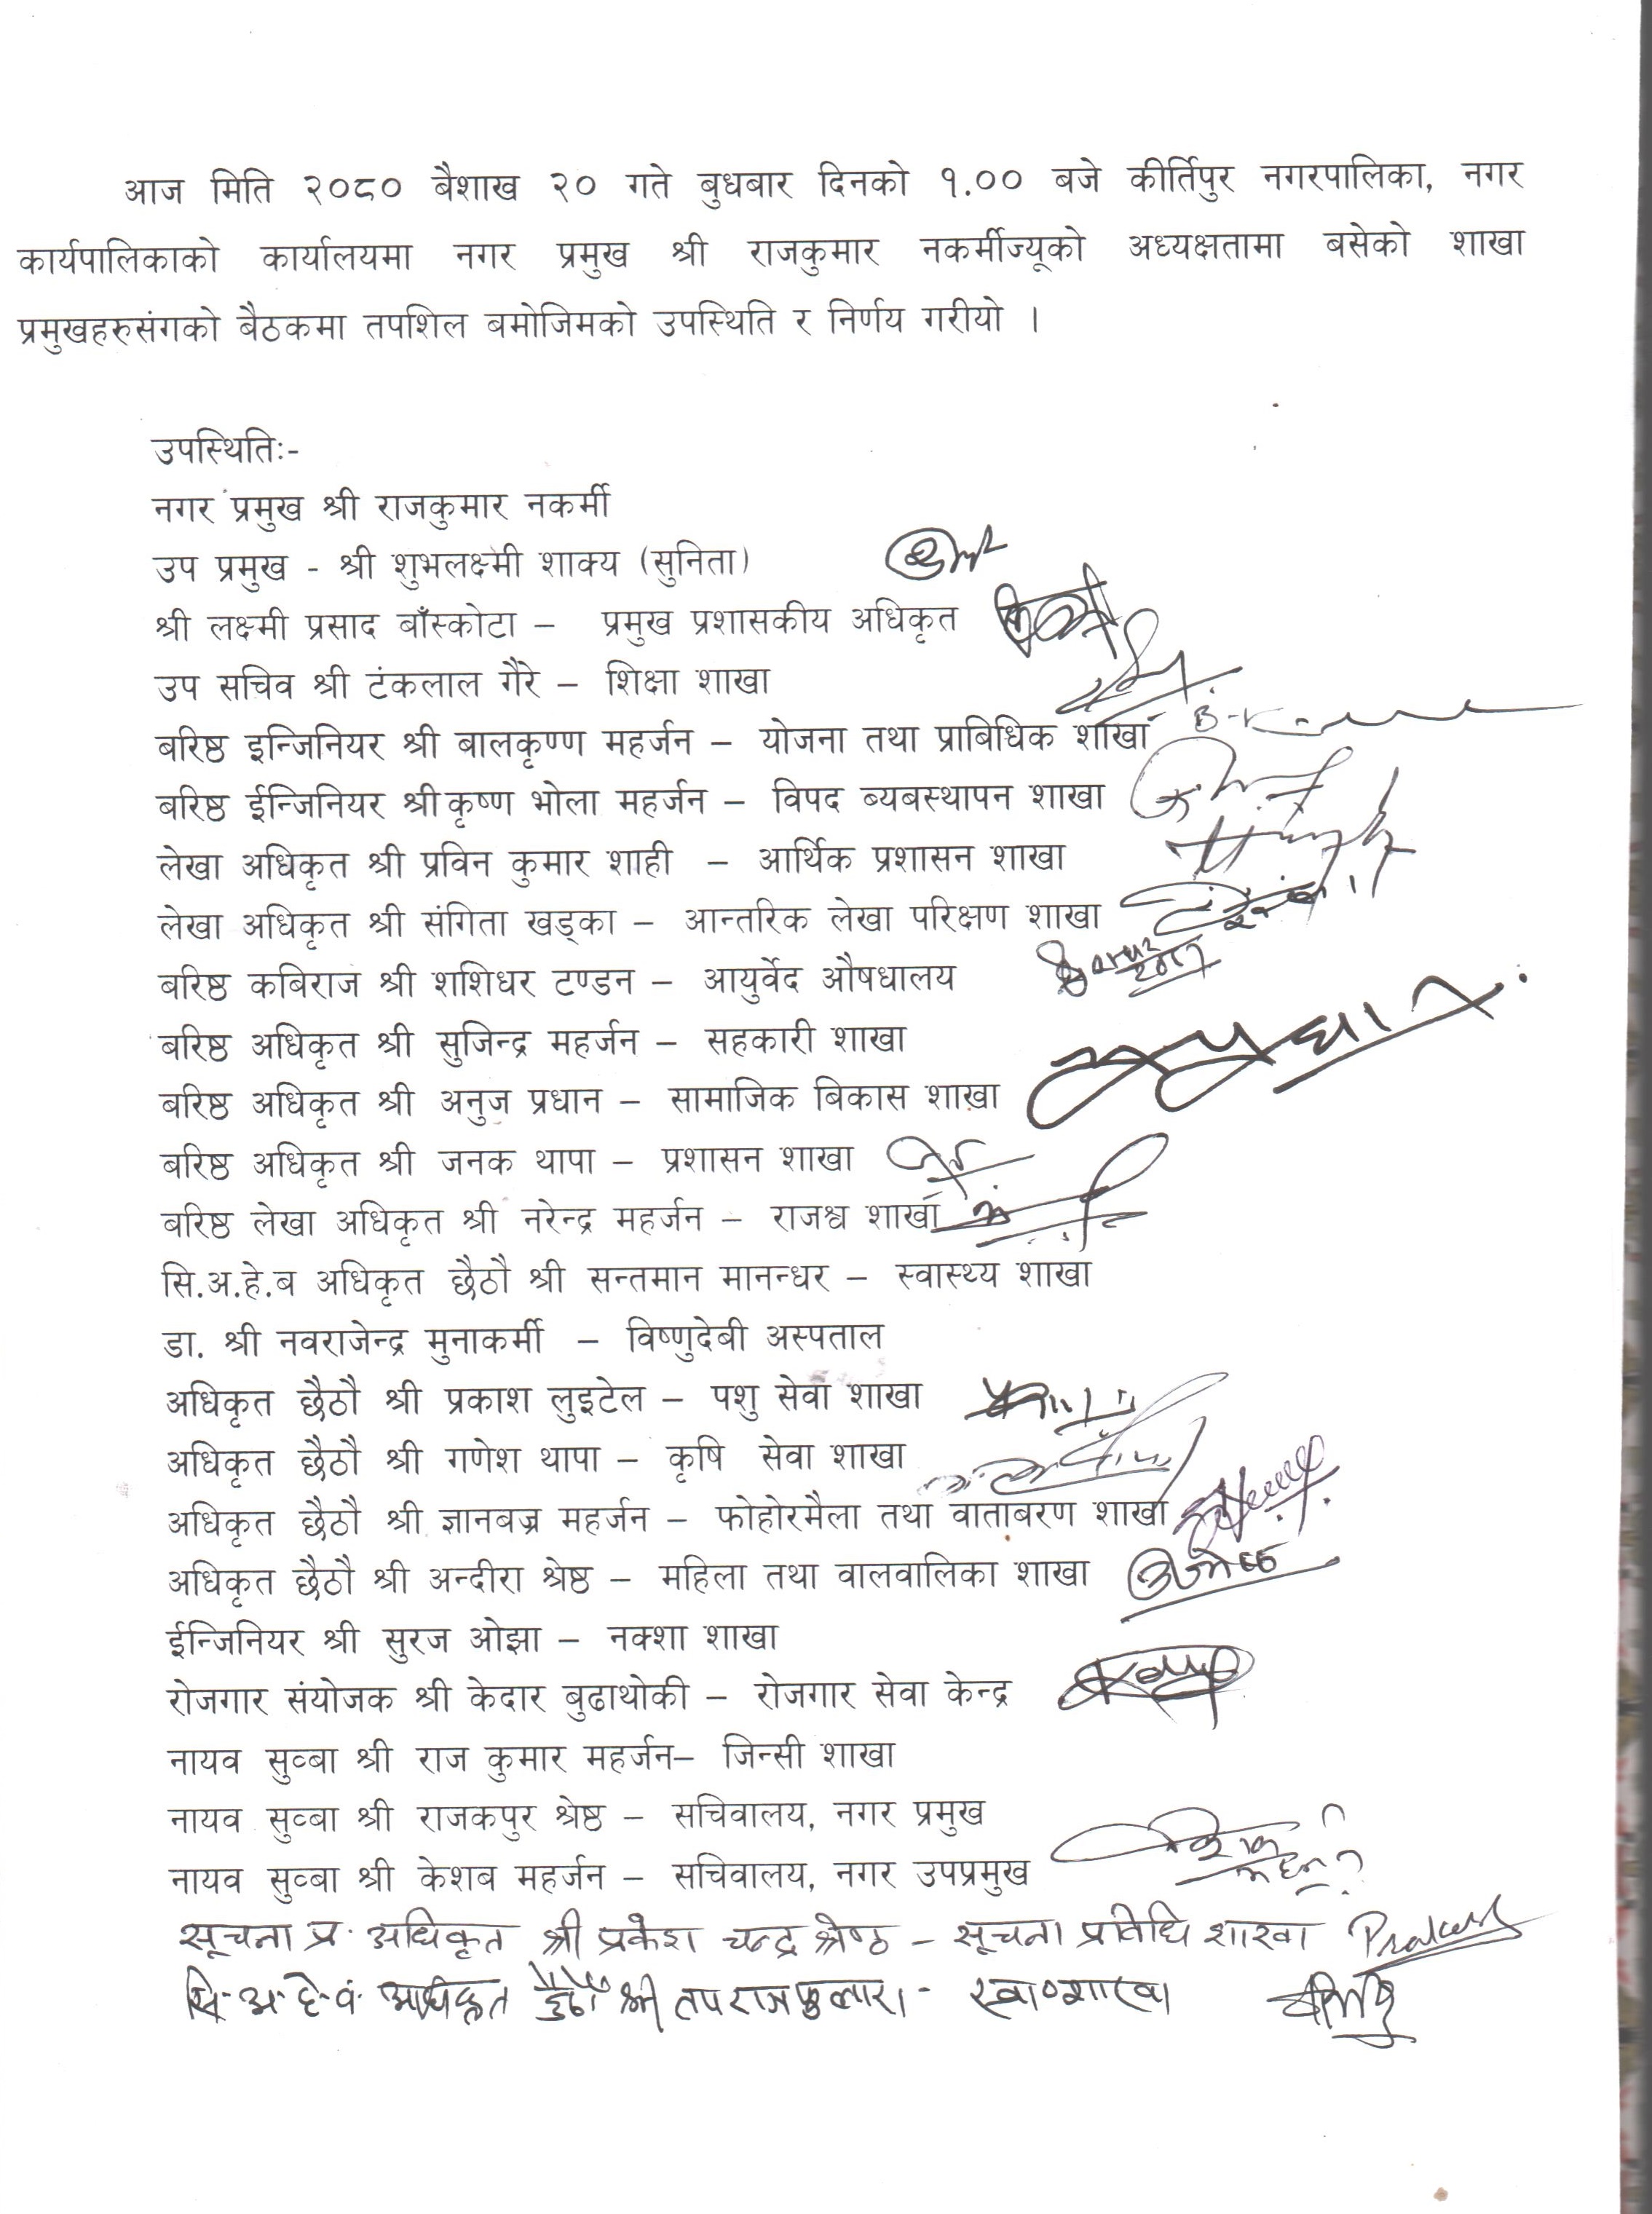 आज मिति २०८० बैशाख २० गते बुधबार दिनको १.०० बजे कीर्तिपुर नगरपालिका, नगर
कार्यपालिकाको कार्यालयमा नगर प्रमुख श्री राजकुमार नकर्मीज्यूको अध्यक्षतामा बसेको शाखा
प्रमुखहरुसंगको बैठकमा तपशिल बमोजिमको उपस्थिति र निर्णय गरीयो ।
उपस्थितिः-
नगर प्रमुख श्री राजकुमार नकर्मी
उप प्रमुख - श्री शुभलक्ष्मी शाक्य (सुनिता)
श्री लक्ष्मी प्रसाद बाँस्कोटा – प्रमुख प्रशासकीय अधिकृत
उप सचिव श्री टंकलाल गैरे – शिक्षा शाखा
बरिष्ठ इन्जिनियर श्री बालकृण्ण महर्जन – योजना तथा प्राबिधिक शाखा
बरिष्ठ ईन्जिनियर श्री कृष्ण भोला महर्जन – विपद ब्यबस्थापन शाखा
लेखा अधिकृत श्री प्रविन कुमार शाही – आर्थिक प्रशासन शाखा
लेखा अधिकृत श्री संगिता खड्का – आन्तरिक लेखा परिक्षण शाखा
बरिष्ठ कबिराज श्री शशिधर टण्डन – आयुर्वेद औषधालय
बरिष्ठ अधिकृत श्री सुजिन्द्र महर्जन – सहकारी शाखा
बरिष्ठ अधिकृत श्री अनुज प्रधान – सामाजिक बिकास शाखा
बरिष्ठ अधिकृत श्री जनक थापा – प्रशासन शाखा
बरिष्ठ लेखा अधिकृत श्री नरेन्द्र महर्जन – राजश्व शाखा
सि.अ.हे.ब अधिकृत छैठौ श्री सन्तमान मानन्धर – स्वास्थ्य शाखा
डा. श्री नवराजेन्द्र मुनाकर्मी – विष्णुदेबी अस्पताल
अधिकृत छैठौ श्री प्रकाश लुइटेल – पशु सेवा शाखा
अधिकृत छैठौ श्री गणेश थापा – कृषि सेवा शाखा
अधिकृत छैठौ श्री ज्ञानबज्र महर्जन – फोहोरमैला तथा वाताबरण शाखा
अधिकृत छैठौ श्री अन्दीरा श्रेष्ठ – महिला तथा वालवालिका शाखा
ईन्जिनियर श्री सुरज ओझा – नक्शा शाखा
रोजगार संयोजक श्री केदार बुढाथोकी – रोजगार सेवा केन्द्र
नायव सुव्बा श्री राज कुमार महर्जन– जिन्सी शाखा
नायव सुव्बा श्री राजकपुर श्रेष्ठ – सचिवालय, नगर प्रमुख
नायव सुव्बा श्री केशब महर्जन – सचिवालय, नगर उपप्रमुख
सूचना प्र. अधिकृत श्री प्रकेश चन्द्र श्रेष्ठ – सूचना प्रविधि शाखा
सि.अ.हे.व. अधिकृत छैठौ श्री तपराज – स्वा० शाखा